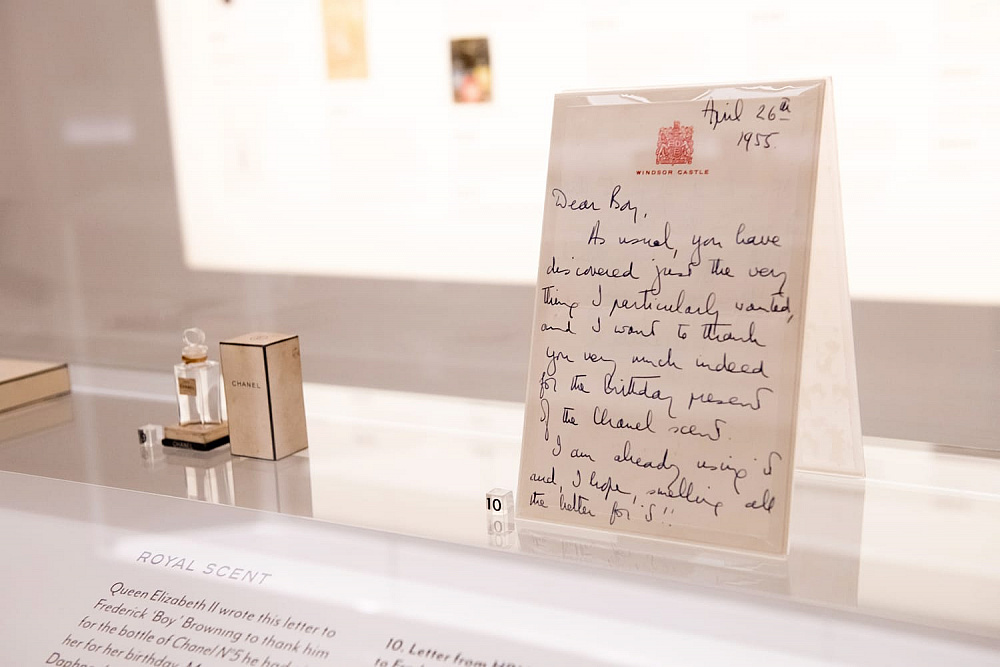 April 26th
1955.
WINDSOR CASTLE
Dear Boy,
As usual, you have
discovered just the very
thing I particularly wanted,
and I want to thank
you very much indeed
for the birthday present
of the Chanel scent.
I am already using it
and, I hope, smelling all
the better for it!!
CHANEL
CHANEL
10
ROYAL SCENT
Queen Elizabeth II wrote this letter to
Frederick 'Boy' Browning to thank him
for the bottle of Chanel N°5 he had
her for her birthday.
10. Letter from